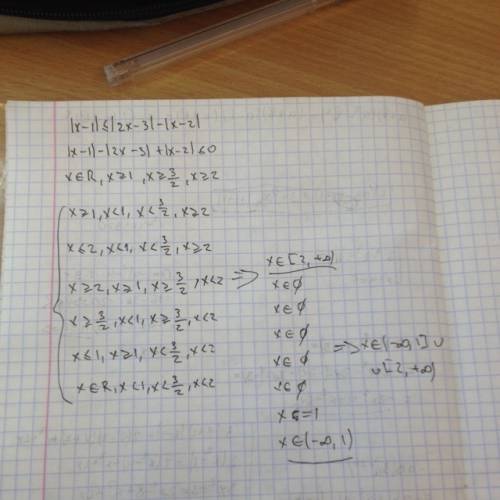 |x-1|≤|2x-3|-|x-2|
|x-1|-|2x-3|+|x-2|≤0
x∈R, x≥1, x≥3/2, x≥2
x≥1, x<1, x<3/2, x≥2
x≤2, x<1, x<3/2, x≥2
x≥2, x≥1, x≥3/2, x<2 =>
x≥3/2, x<1, x≥3/2, x<2
x≤1, x≥1, x<3/2, x<2
x∈R, x<1, x<3/2, x<2
x∈[2,+∞)
x∈∅
x∈∅
x∈∅
x∈∅
x∈∅
x=1
x∈(-∞,1)
=> x∈(-∞,1]∪
∪[2,+∞)